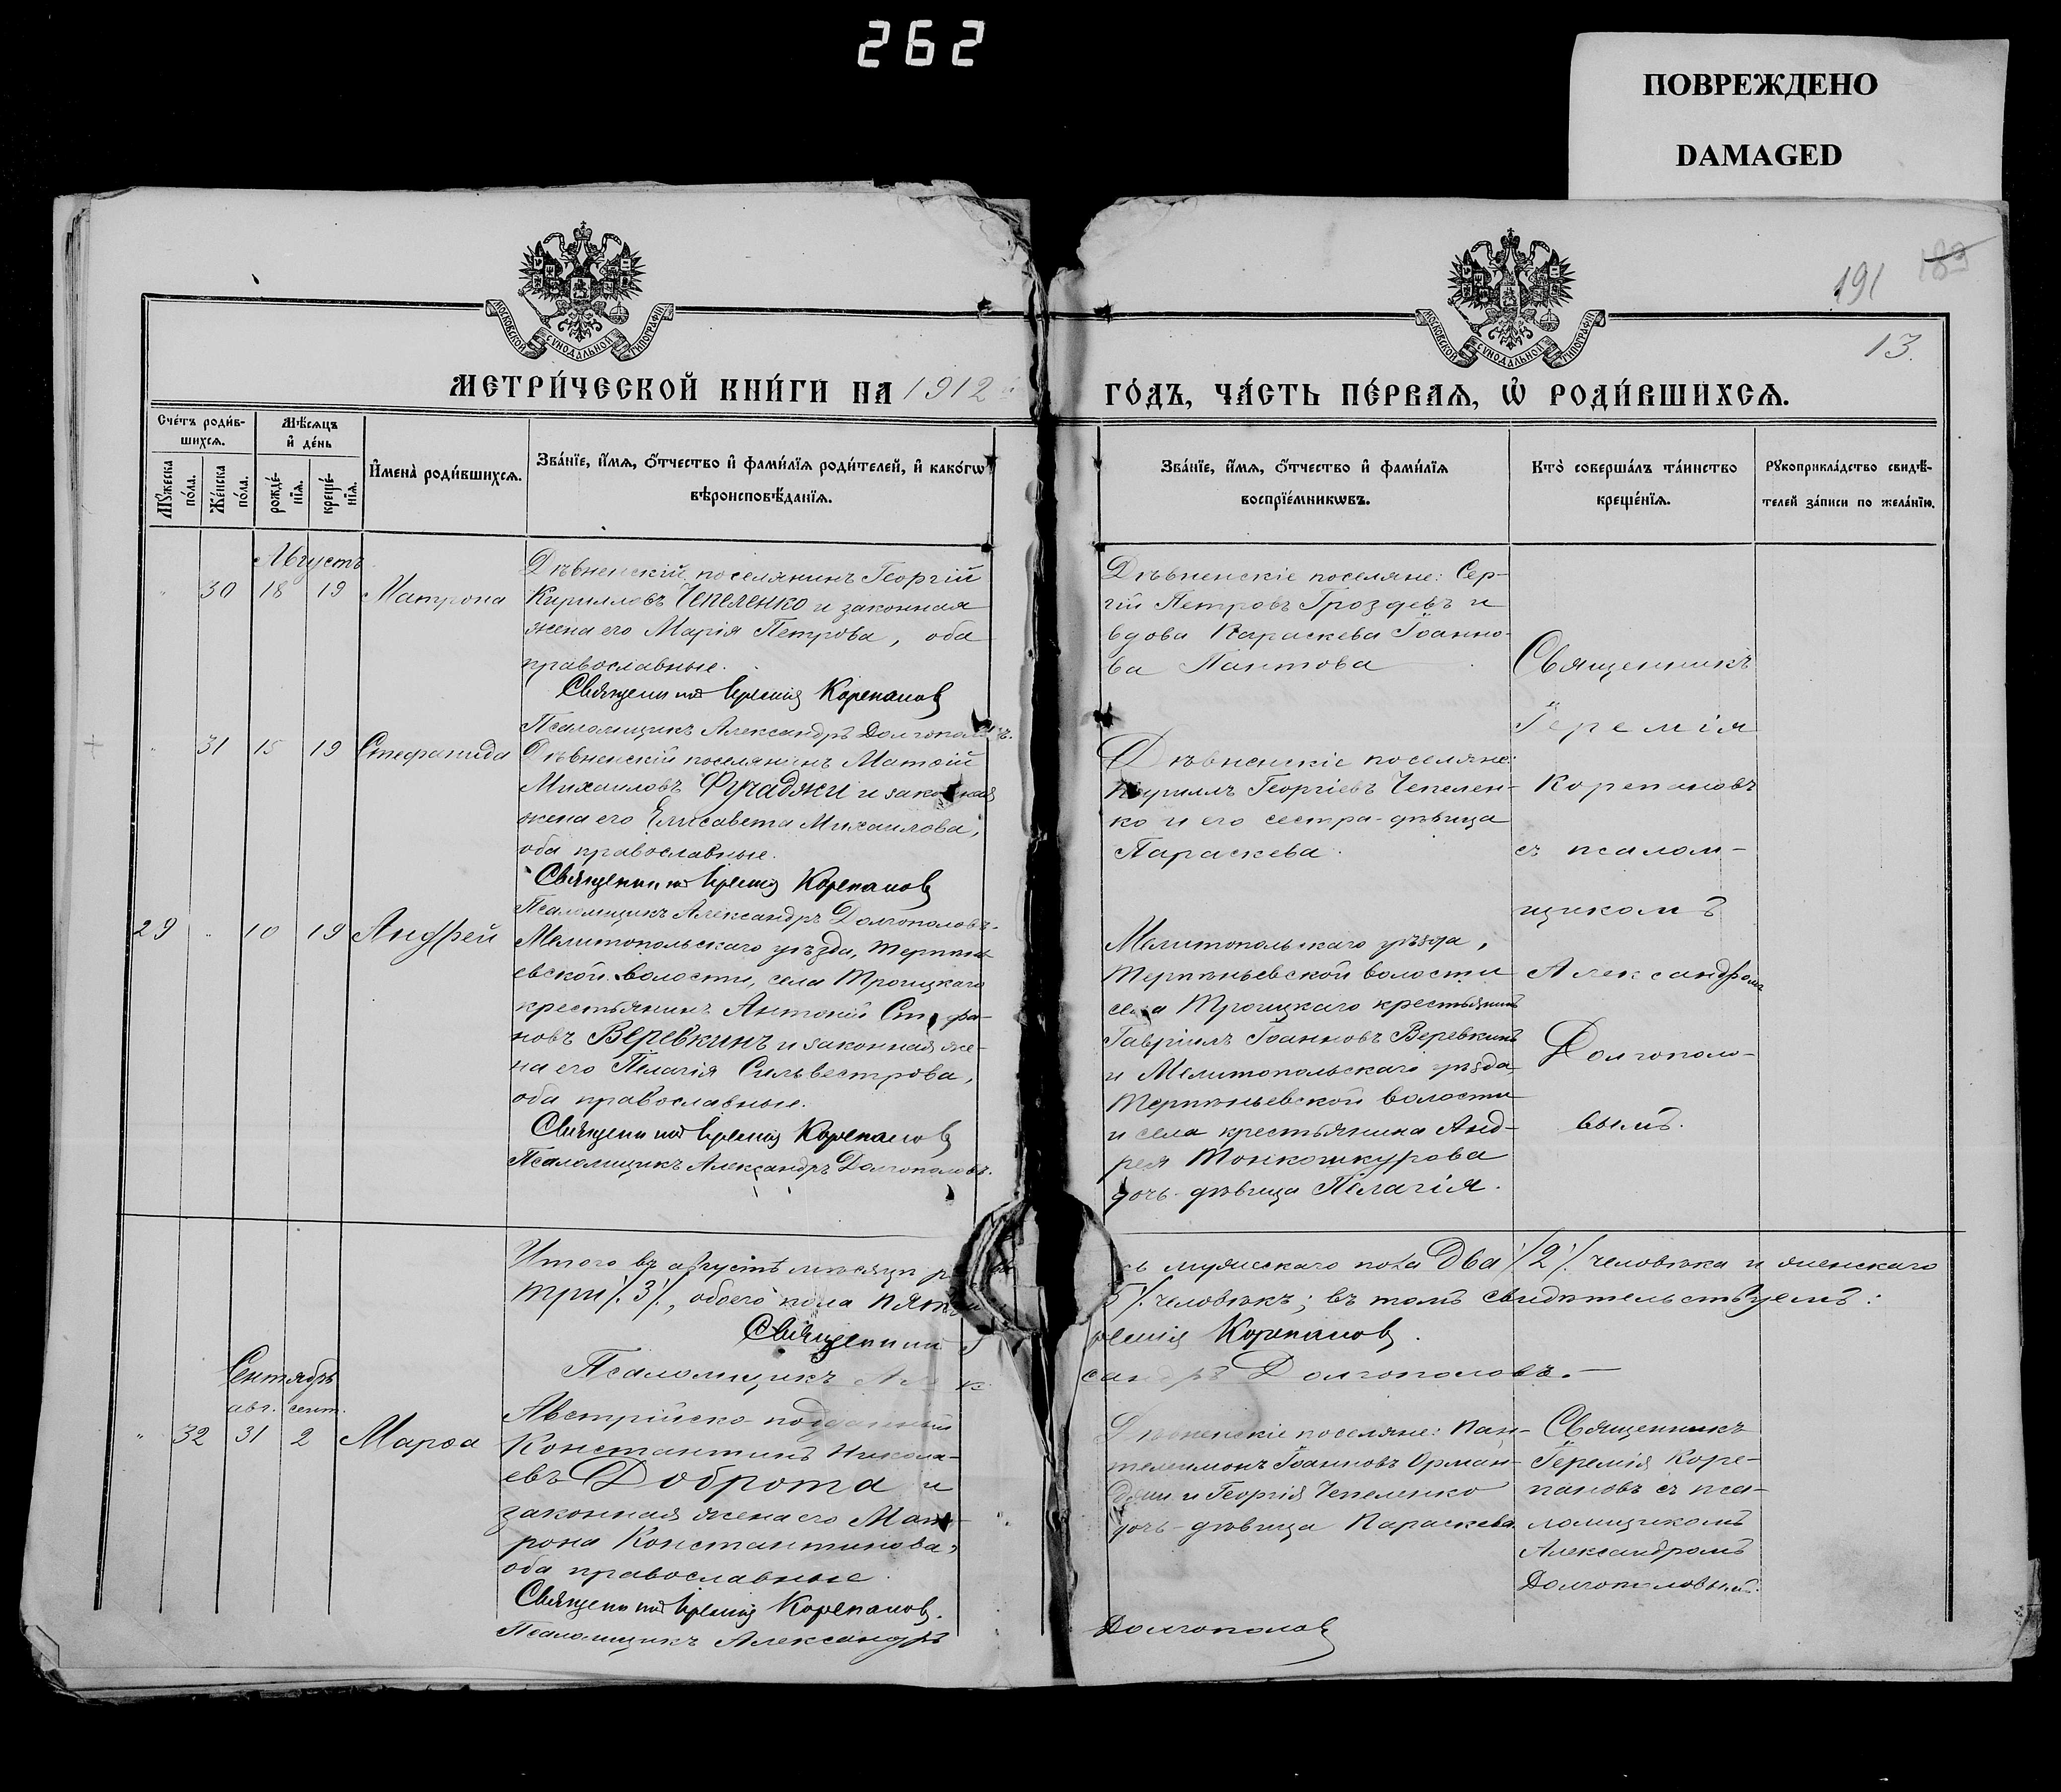 262
ПОВРЕЖДЕНО
DAMAGED
191
189
13.
МОСКОВСКОЙ СУНОДАЛЬНОЙ ТИПОГРАФІИ
МОСКОВСКОЙ СУНОДАЛЬНОЙ ТИПОГРАФІИ
МЕТРИ́ЧЕСКОЙ КНИ́ГИ НА 1912
ГО́ДЪ, ЧА́СТЬ ПЕ́РВАѦ, Ѡ҆ РОДИ́ВШИХСѦ.
Сче́тъ роди́в-
шихсѧ.
Мѣ́сѧцъ
и҆ де́нь
Мꙋ́жеска
по́ла.
Же́нска
по́ла.
рожде́-
нїѧ.
креще́-
нїѧ.
И҆мена̀ роди́вшихсѧ.
Зва́нїе, и҆́мѧ, ѻ҆́тчество и҆ фами́лїѧ роди́телей, и҆ како́гѡ
вѣроисповѣ́данїѧ.
Зва́нїе, и҆́мѧ, ѻ҆́тчество и҆ фами́лїѧ
воспрїе́мникѡвъ.
Кто̀ соверша́лъ та́инство
креще́нїѧ.
Рꙋкоприкла́дство свидѣ́-
телей за́писи по жела́нїю.
Августъ
" 30 18 19 Матрона
Дѣвненскій поселянинъ Георгій
Кирилловъ Чепеленко и законная
жена его Марія Петрова, оба
православные.
Священникъ Іеремія Корепановъ
Псаломщикъ Александръ Долгополовъ.
Дѣвненскіе поселяне: Сер-
гій Петровъ Гроздевъ и
вдова Параскева Іоанно-
ва Пантова
Священникъ
Іеремія
Корепановъ
съ псалом-
щикомъ
Александромъ
Долгополо-
вымъ.
" 31 15 19 Стефанида
Дѣвненскій поселянинъ Матѳій
Михаиловъ Фучаджи и законная
жена его Елисавета Михаилова,
оба православные.
Священникъ Іеремія Корепановъ
Псаломщикъ Александръ Долгополовъ.
Дѣвненскіе поселяне:
Кириллъ Георгіевъ Чепелен-
ко и его сестра-дѣвица
Параскева.
29 " 10 19 Андрей
Мелитопольскаго уѣзда, Терпѣнь-
евской волости, села Троицкаго
крестьянинъ Антоній Стефа-
новъ Веревкинъ и законная же-
на его Пелагія Сильвестрова,
оба православные.
Священникъ Іеремія Корепановъ
Псаломщикъ Александръ Долгополовъ.
Мелитопольскаго уѣзда,
Терпѣньевской волости
села Троицкаго крестьянинъ
Гавріилъ Іоанновъ Веревкинъ
и Мелитопольскаго уѣзда,
Терпѣньевской волости
и села крестьянина Анд-
рея Тонкошкурова
дочь-дѣвица Пелагія.
Итого въ августѣ мѣсяцѣ
сь мужескаго пола Два /2/ человѣка и женскаго
три /3/, обоего пола пять
5/ человѣкъ; въ томъ свидѣтельствуемъ:
Священникъ
ремія Корепановъ.
Псаломщикъ Алек
сандръ Долгополовъ.
Сентябрь
авг. сент.
" 32 31 2 Марѳа
Австрійско-подданный
Константинъ Никола-
евъ Доброта и
законная жена его Мат-
рона Константинова,
оба православные.
Священникъ Іеремія Корепановъ.
Псаломщикъ Александръ
Долгополовъ
Дѣвненскіе поселяне: Пан-
телеимонъ Іоанновъ Орман-
джи и Георгія Чепеленко
дочь-дѣвица Параскева.
Священникъ
Іеремія Коре-
пановъ съ пса-
ломщикомъ
Александромъ
Долгополовымъ.